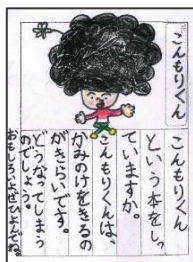 こんもりくん
こんもりくん
という本をしっ
ていますか。
こんもりくんは、
かみのけをきるの
がきらいです。
どうなってしまう
のでしょう。
おもしろいよ。ぜひよんでね。